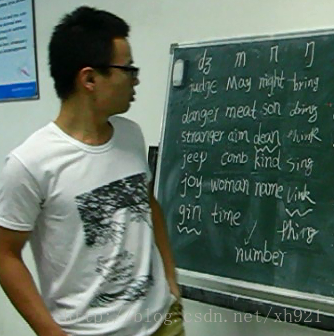 dʒ m n ŋ
judge May night bring
danger meat son
stranger aim dean think
jeep comb kind sing
joy woman name
gin time thing
number
http://blog.csdn.net/xh921